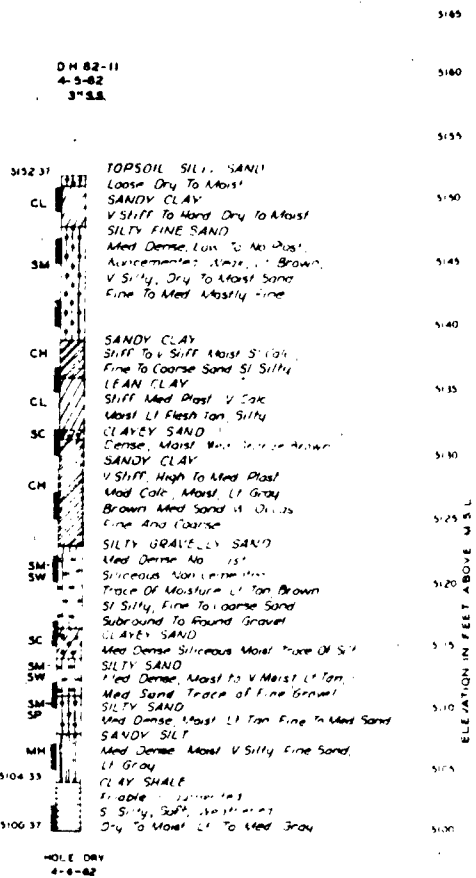 DH 82-11
4-5-82
3" S.S.
5152.37
TOPSOIL SILTY SAND
Loose Dry To Moist
CL
SANDY CLAY
V Stiff To Hard Dry To Moist
SILTY FINE SAND
Med Dense, Low To No Plast,
SM
Noncemented Weak, Lt Brown,
V Silty, Dry To Moist Sand
Fine To Med Mostly Fine
SANDY CLAY
CH
Stiff To V Stiff Moist Sl Calc,
Fine To Coarse Sand Sl Silty
LEAN CLAY
CL
Stiff Med Plast V Calc
Moist Lt Flesh Tan, Silty
SC
CLAYEY SAND
Dense, Moist Brown
SANDY CLAY
V Stiff, High To Med Plast
CH
Mod Calc, Moist, Lt Gray
Brown Med Sand W Occas
Fine And Coarse
SILTY GRAVELLY SAND
SM-
SW
Med Dense
Siliceous Noncemented
Trace Of Moisture Lt Tan, Brown
Sl Silty, Fine To Coarse Sand
Subround To Round Gravel
SC
CLAYEY SAND
Med Dense Siliceous Moist Trace Of
SM-
SW
SILTY SAND
Med Dense, Moist To V Moist Lt Tan,
Med Sand Trace of Fine Gravel
SM-
SP
SILTY SAND
Med Dense, Moist Lt Tan Fine To Med Sand
SANDY SILT
MH
Med Dense Moist V Silty Fine Sand,
Lt Gray
5104.33
CLAY SHALE
Friable
Sl Silty, Soft, Weathered
5100.37
Dry To Moist Lt To Med Gray
HOLE DRY
4-6-82
5165
5160
5155
5150
5145
5140
5135
5130
5125
5120
5115
5110
5105
5100
ELEVATION IN FEET ABOVE M.S.L.